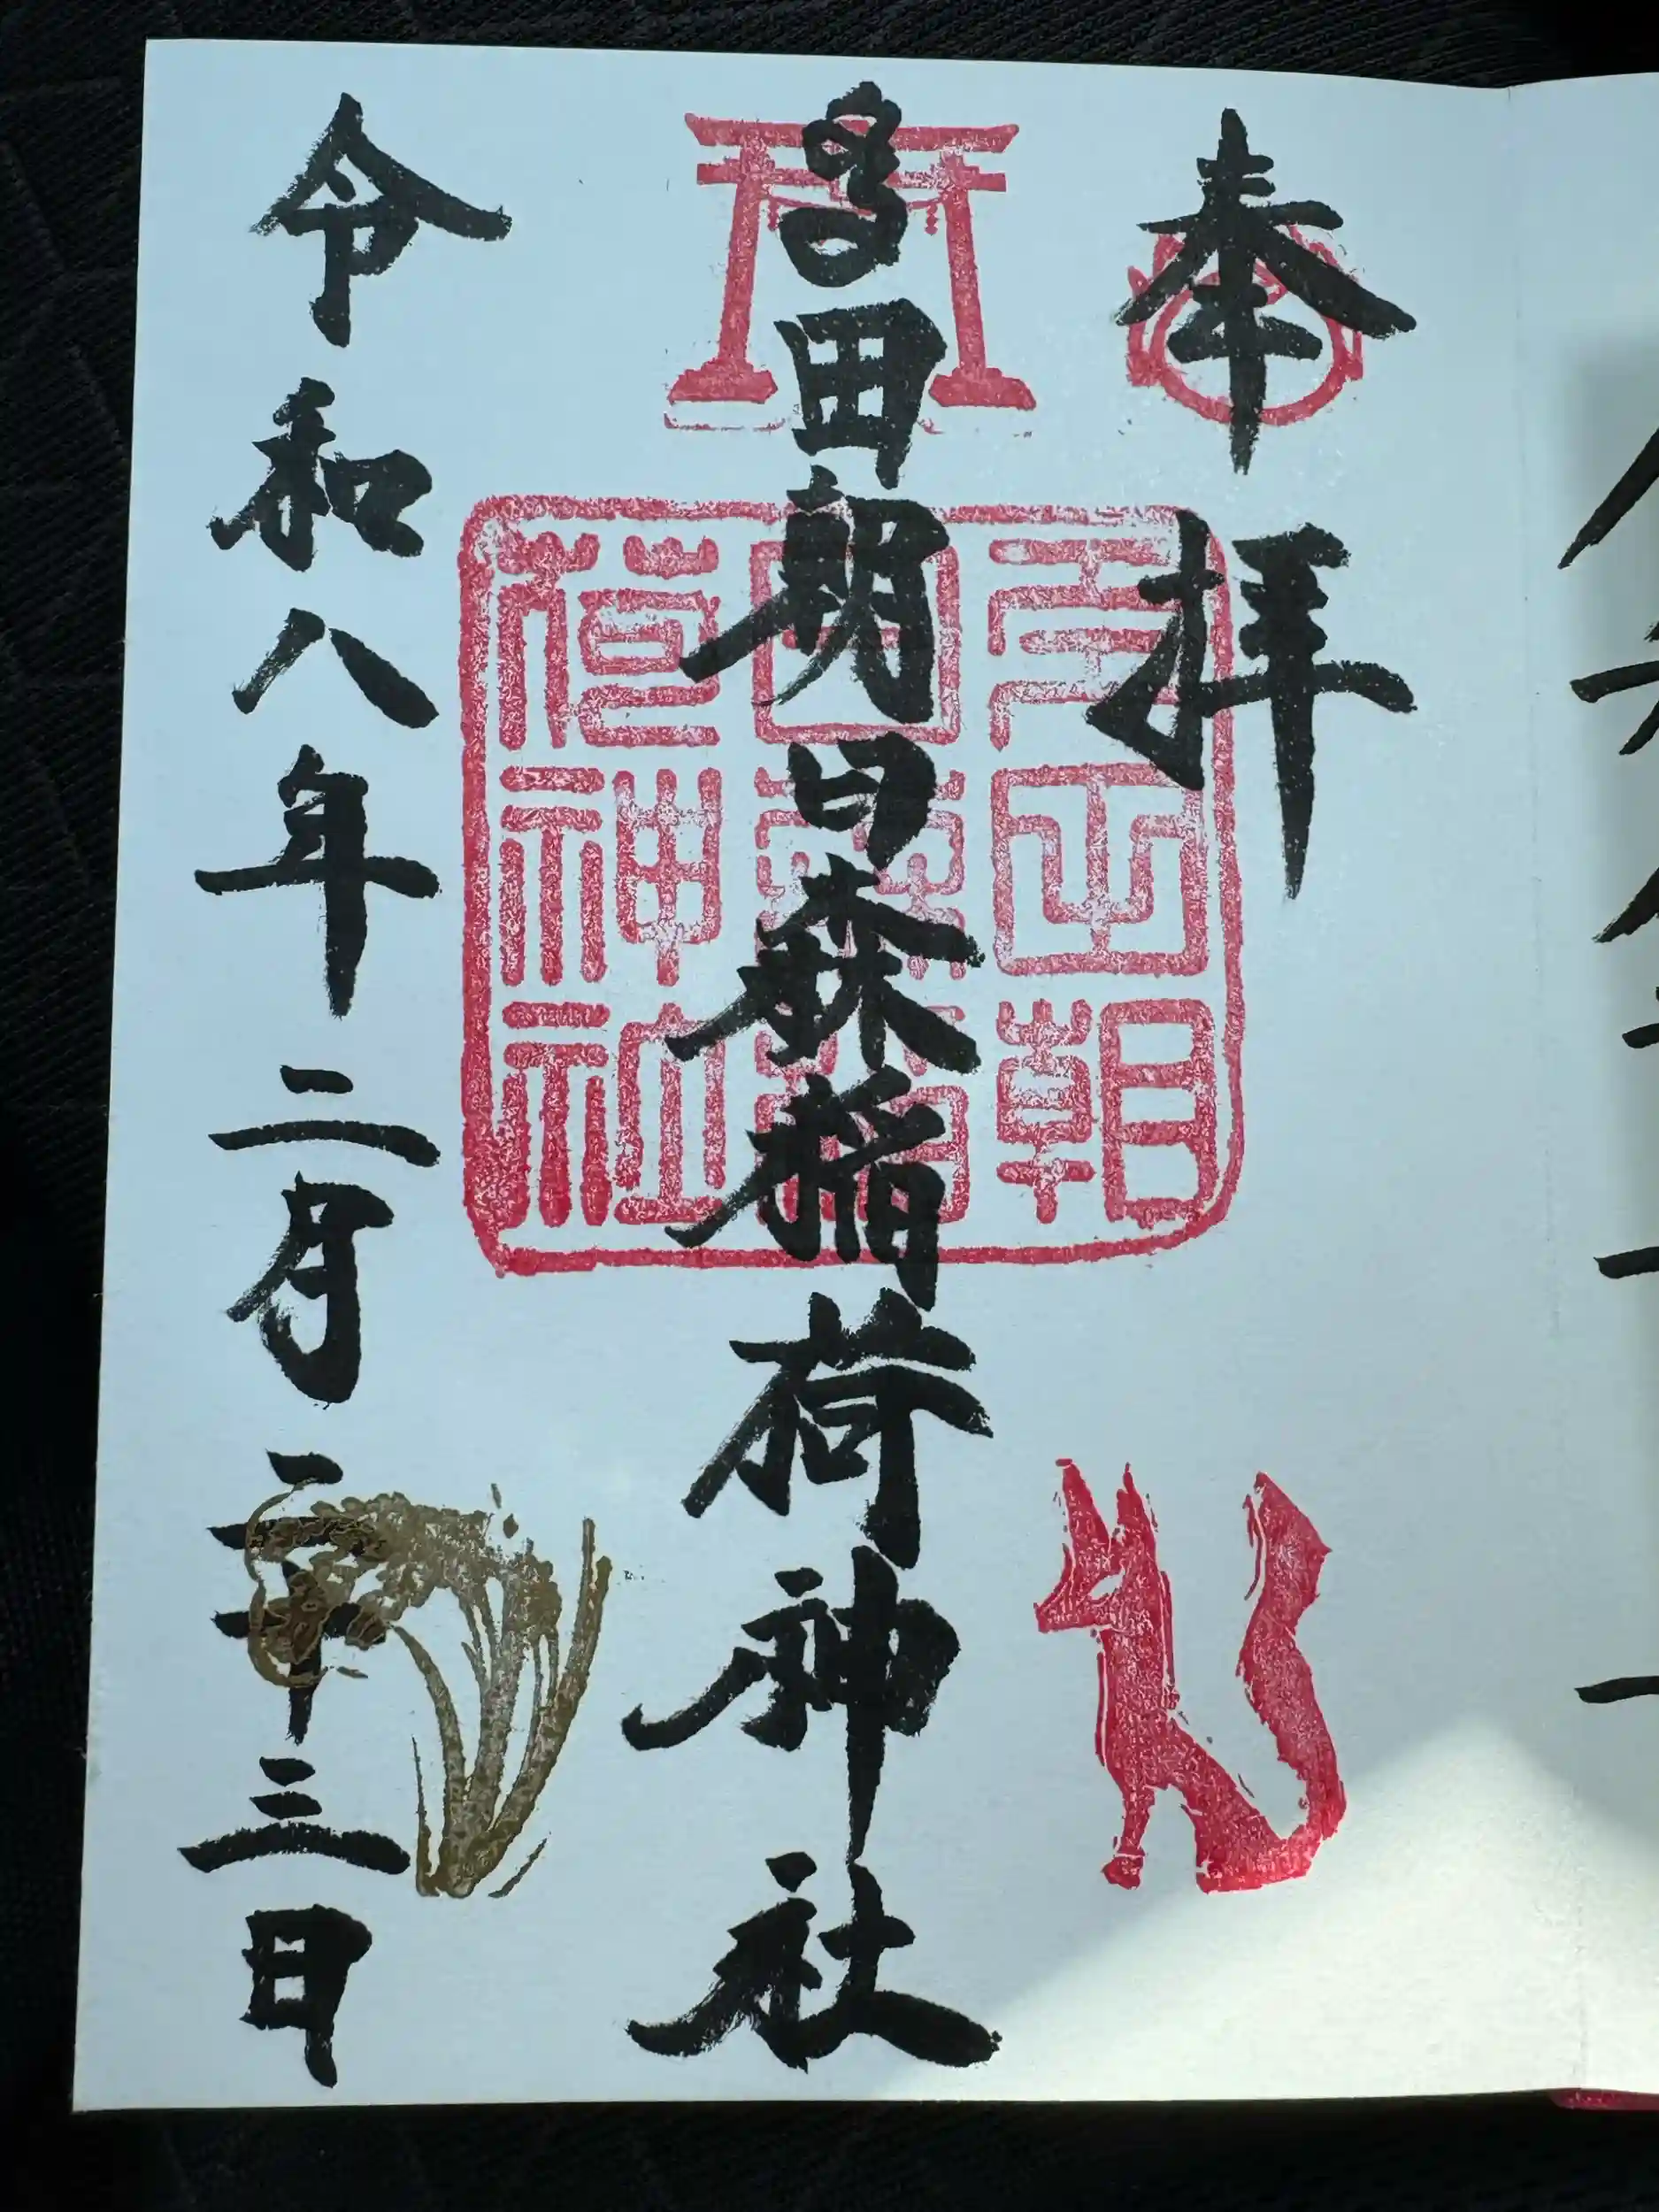 奉拝
田朝日森稲荷神社
令和八年二月二十三日
朝
日森稲
荷神社